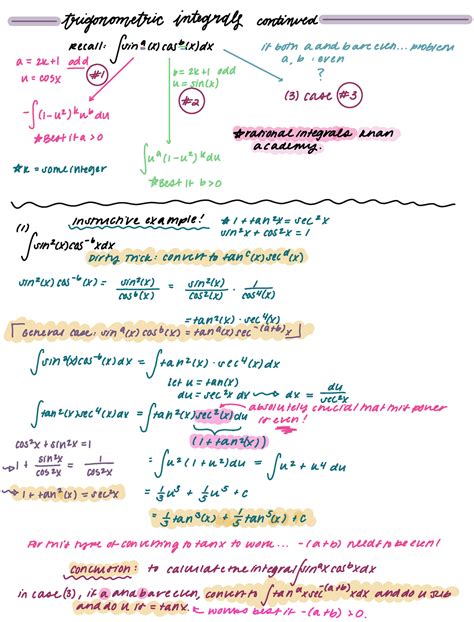 trigonometric integrals continued
recall: ∫sinᵃ(x)cosᵇ(x)dx
if both a and b are even... problem
a, b : even
?
(3) case #3
a = 2k+1 odd
u = cosx
#1
b = 2k+1 odd
u = sin(x)
#2
-∫(1-u²)ᵏuᵇdu
*Best if a > 0
*rational integrals khan
academy.
∫uᵃ(1-u²)ᵏdu
*Best if b > 0
*k = some integer
(1) instructive example!
*1 + tan²x = sec²x
sin²x + cos²x = 1
∫sin²(x)cos⁻⁶xdx
Dirty Trick: convert to tanᶜ(x)secᵈ(x)
sin²(x)cos⁻⁶(x) = sin²(x)/cos⁶(x) = sin²(x)/cos²(x) · 1/cos⁴(x)
= tan²(x) · sec⁴(x)
General case: sinᵃ(x)cosᵇ(x) = tanᵃ(x)sec⁻⁽ᵃ⁺ᵇ⁾x
∫sin²(x)cos⁻⁶(x)dx = ∫tan²(x) · sec⁴(x)dx
let u = tan(x)
du = sec²x dx → dx = du/sec²x
∫tan²(x)sec⁴(x)dx = ∫tan²(x)sec²(x)du ← absolutely crucial that this power
is even!
(1 + tan²(x))
cos²x + sin²x = 1
→ 1 + sin²x/cos²x = 1/cos²x
→ 1 + tan²(x) = sec²x
= ∫u²(1+u²)du = ∫u² + u⁴ du
= ⅓u³ + ⅕u⁵ + c
= ⅓tan³(x) + ⅕tan⁵(x) + c
For this type of converting to tanx to work... -(a+b) need to be even!
conclusion: to calculate the integral ∫sinᵃx cosᵇx dx
in case (3), if a and b are even, convert to ∫tanᵃx sec⁻⁽ᵃ⁺ᵇ⁾xdx and do u sub
and do u it = tanx. ← works best if -(a+b) > 0.